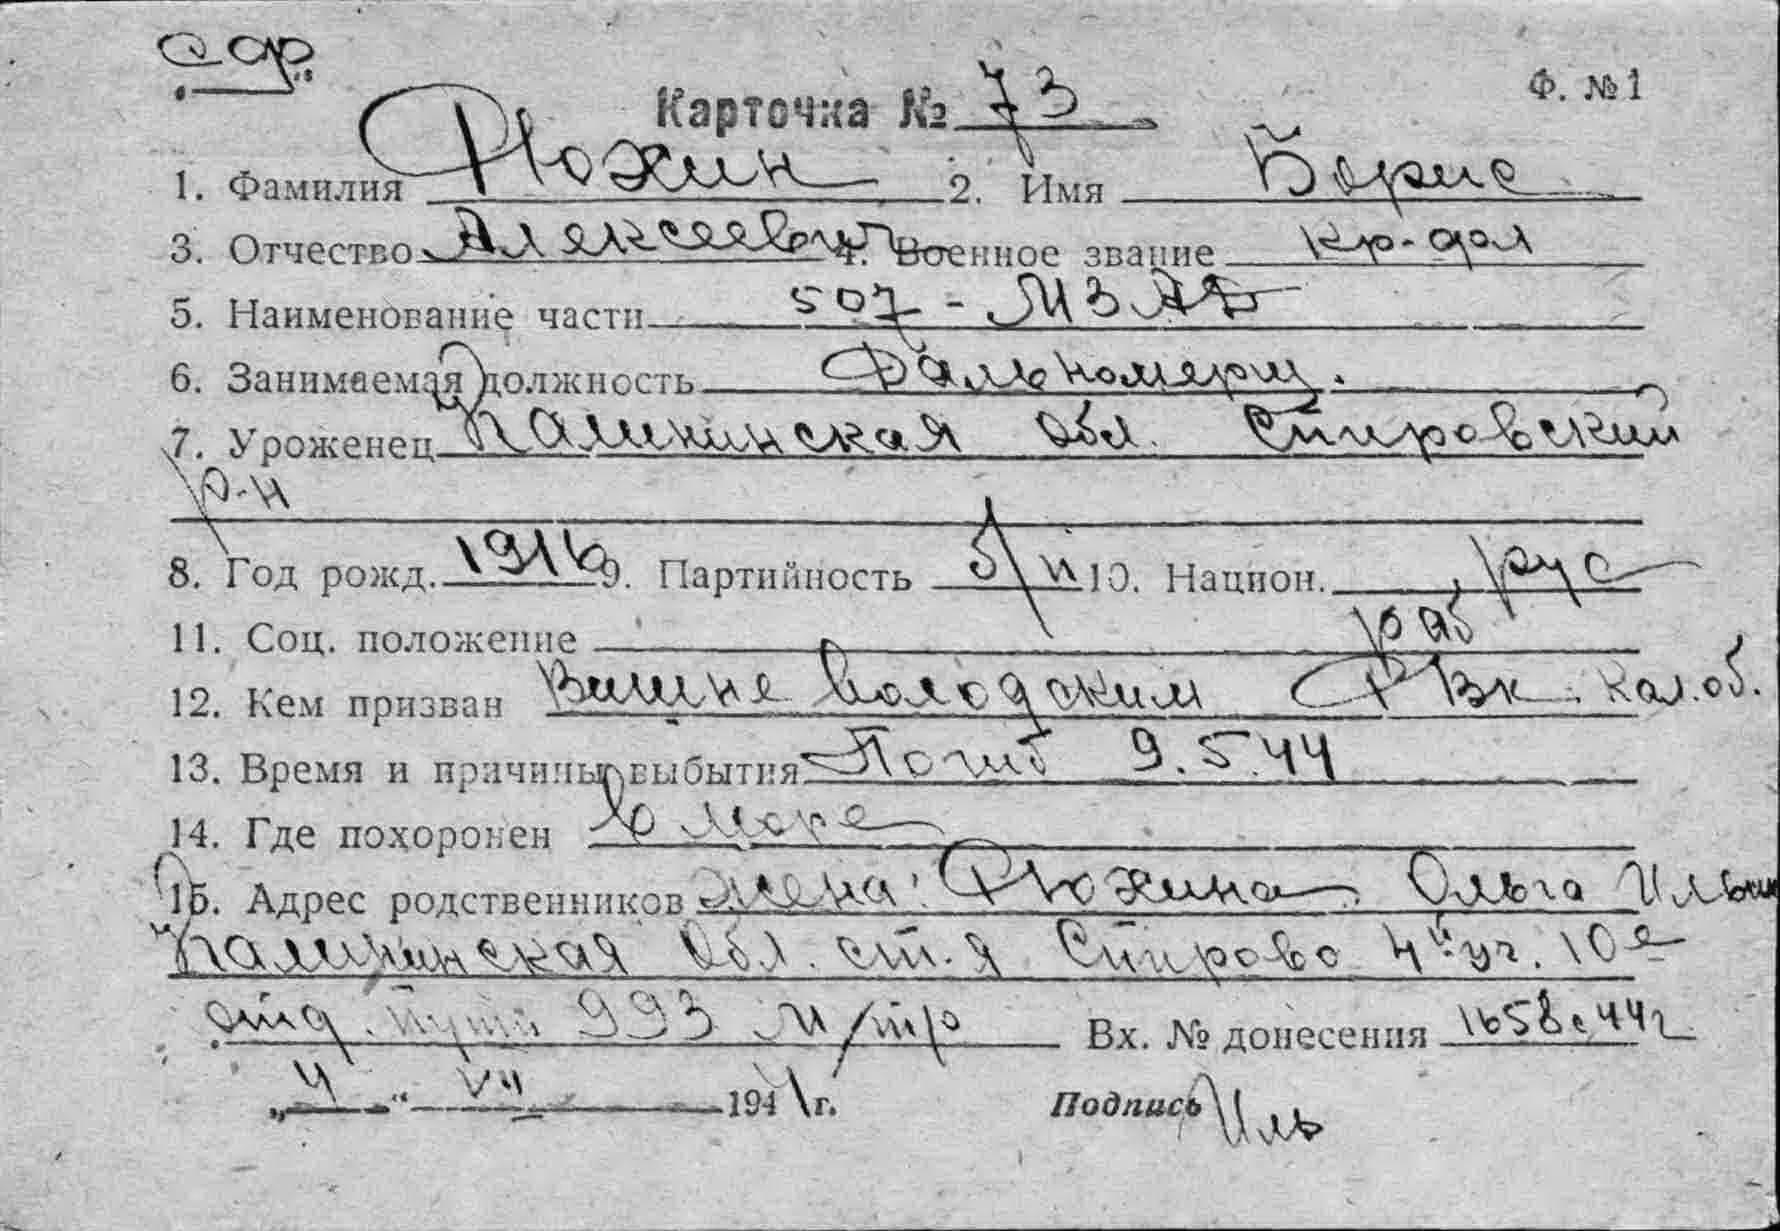 сф
Карточка № 73 Ф. № 1
1. Фамилия Рюхин 2. Имя Борис
3. Отчество Алексеевич 4. Военное звание кр-фл
5. Наименование части 507 - МЗАД
6. Занимаемая должность Дальномерщ.
7. Уроженец Калининская обл. Спировский
р-н
8. Год рожд. 1916 9. Партийность б/п 10. Национ. рус
11. Соц. положение раб
12. Кем призван Вишневолодским РВк. Кал. об.
13. Время и причины выбытия Погиб 9.5.44
14. Где похоронен в море
15. Адрес родственников жена: Рюхина Ольга
Калининская обл. ст. Спирово 4й уч. 10е
отд. пути 993 м/тр Вх. № донесения 1658с 44г
„4“ VII 1944 г. Подпись